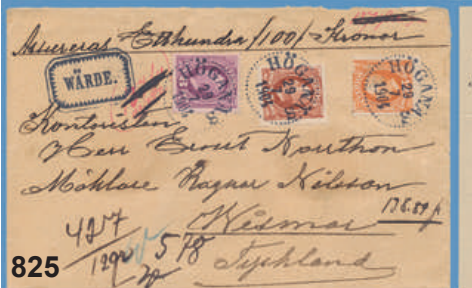 Assureras Etthundra /100/ Kronor
WÄRDE.
HÖGANÄS
HÖGANÄS
29 7 1904
HÖGANÄS
29 7 1904
Kontoristen
Herr Ernst
Mäklare Ragnar Nilsson
Wismar
Tyskland
427
578
825